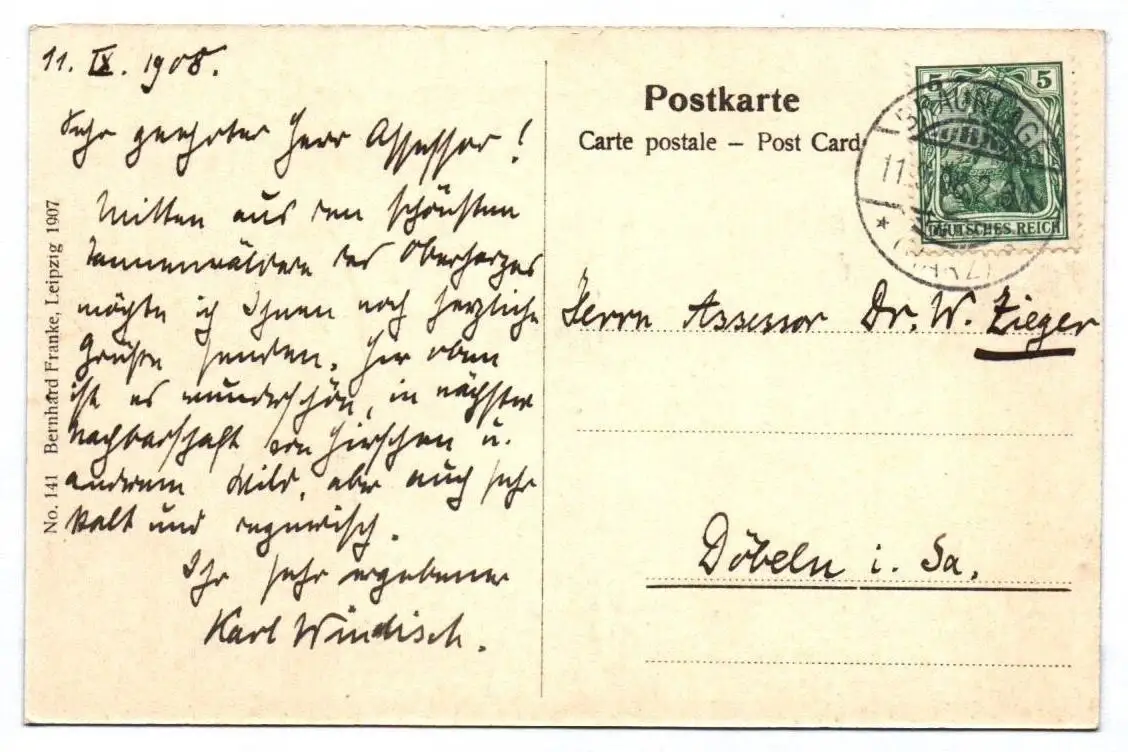 11. IX. 1908.
Sehr geehrter Herr Assessor!
Mitten aus den schönsten
Tannenwäldern des Oberharzes
möchte ich Ihnen noch herzliche
Grüße senden. Hier oben
ist es wunderschön, in nächster
Nachbarschaft von Hirschen u.
anderem Wild, aber auch sehr
kalt und regnerisch.
Ihr sehr ergebener
Karl Windisch.
No. 141 Bernhard Franke, Leipzig 1907
Postkarte
Carte postale – Post Card
5 5
DEUTSCHES REICH
BRAUNLAGE
(HARZ)
Herrn Assessor Dr. W. Zieger
Döbeln i. Sa.